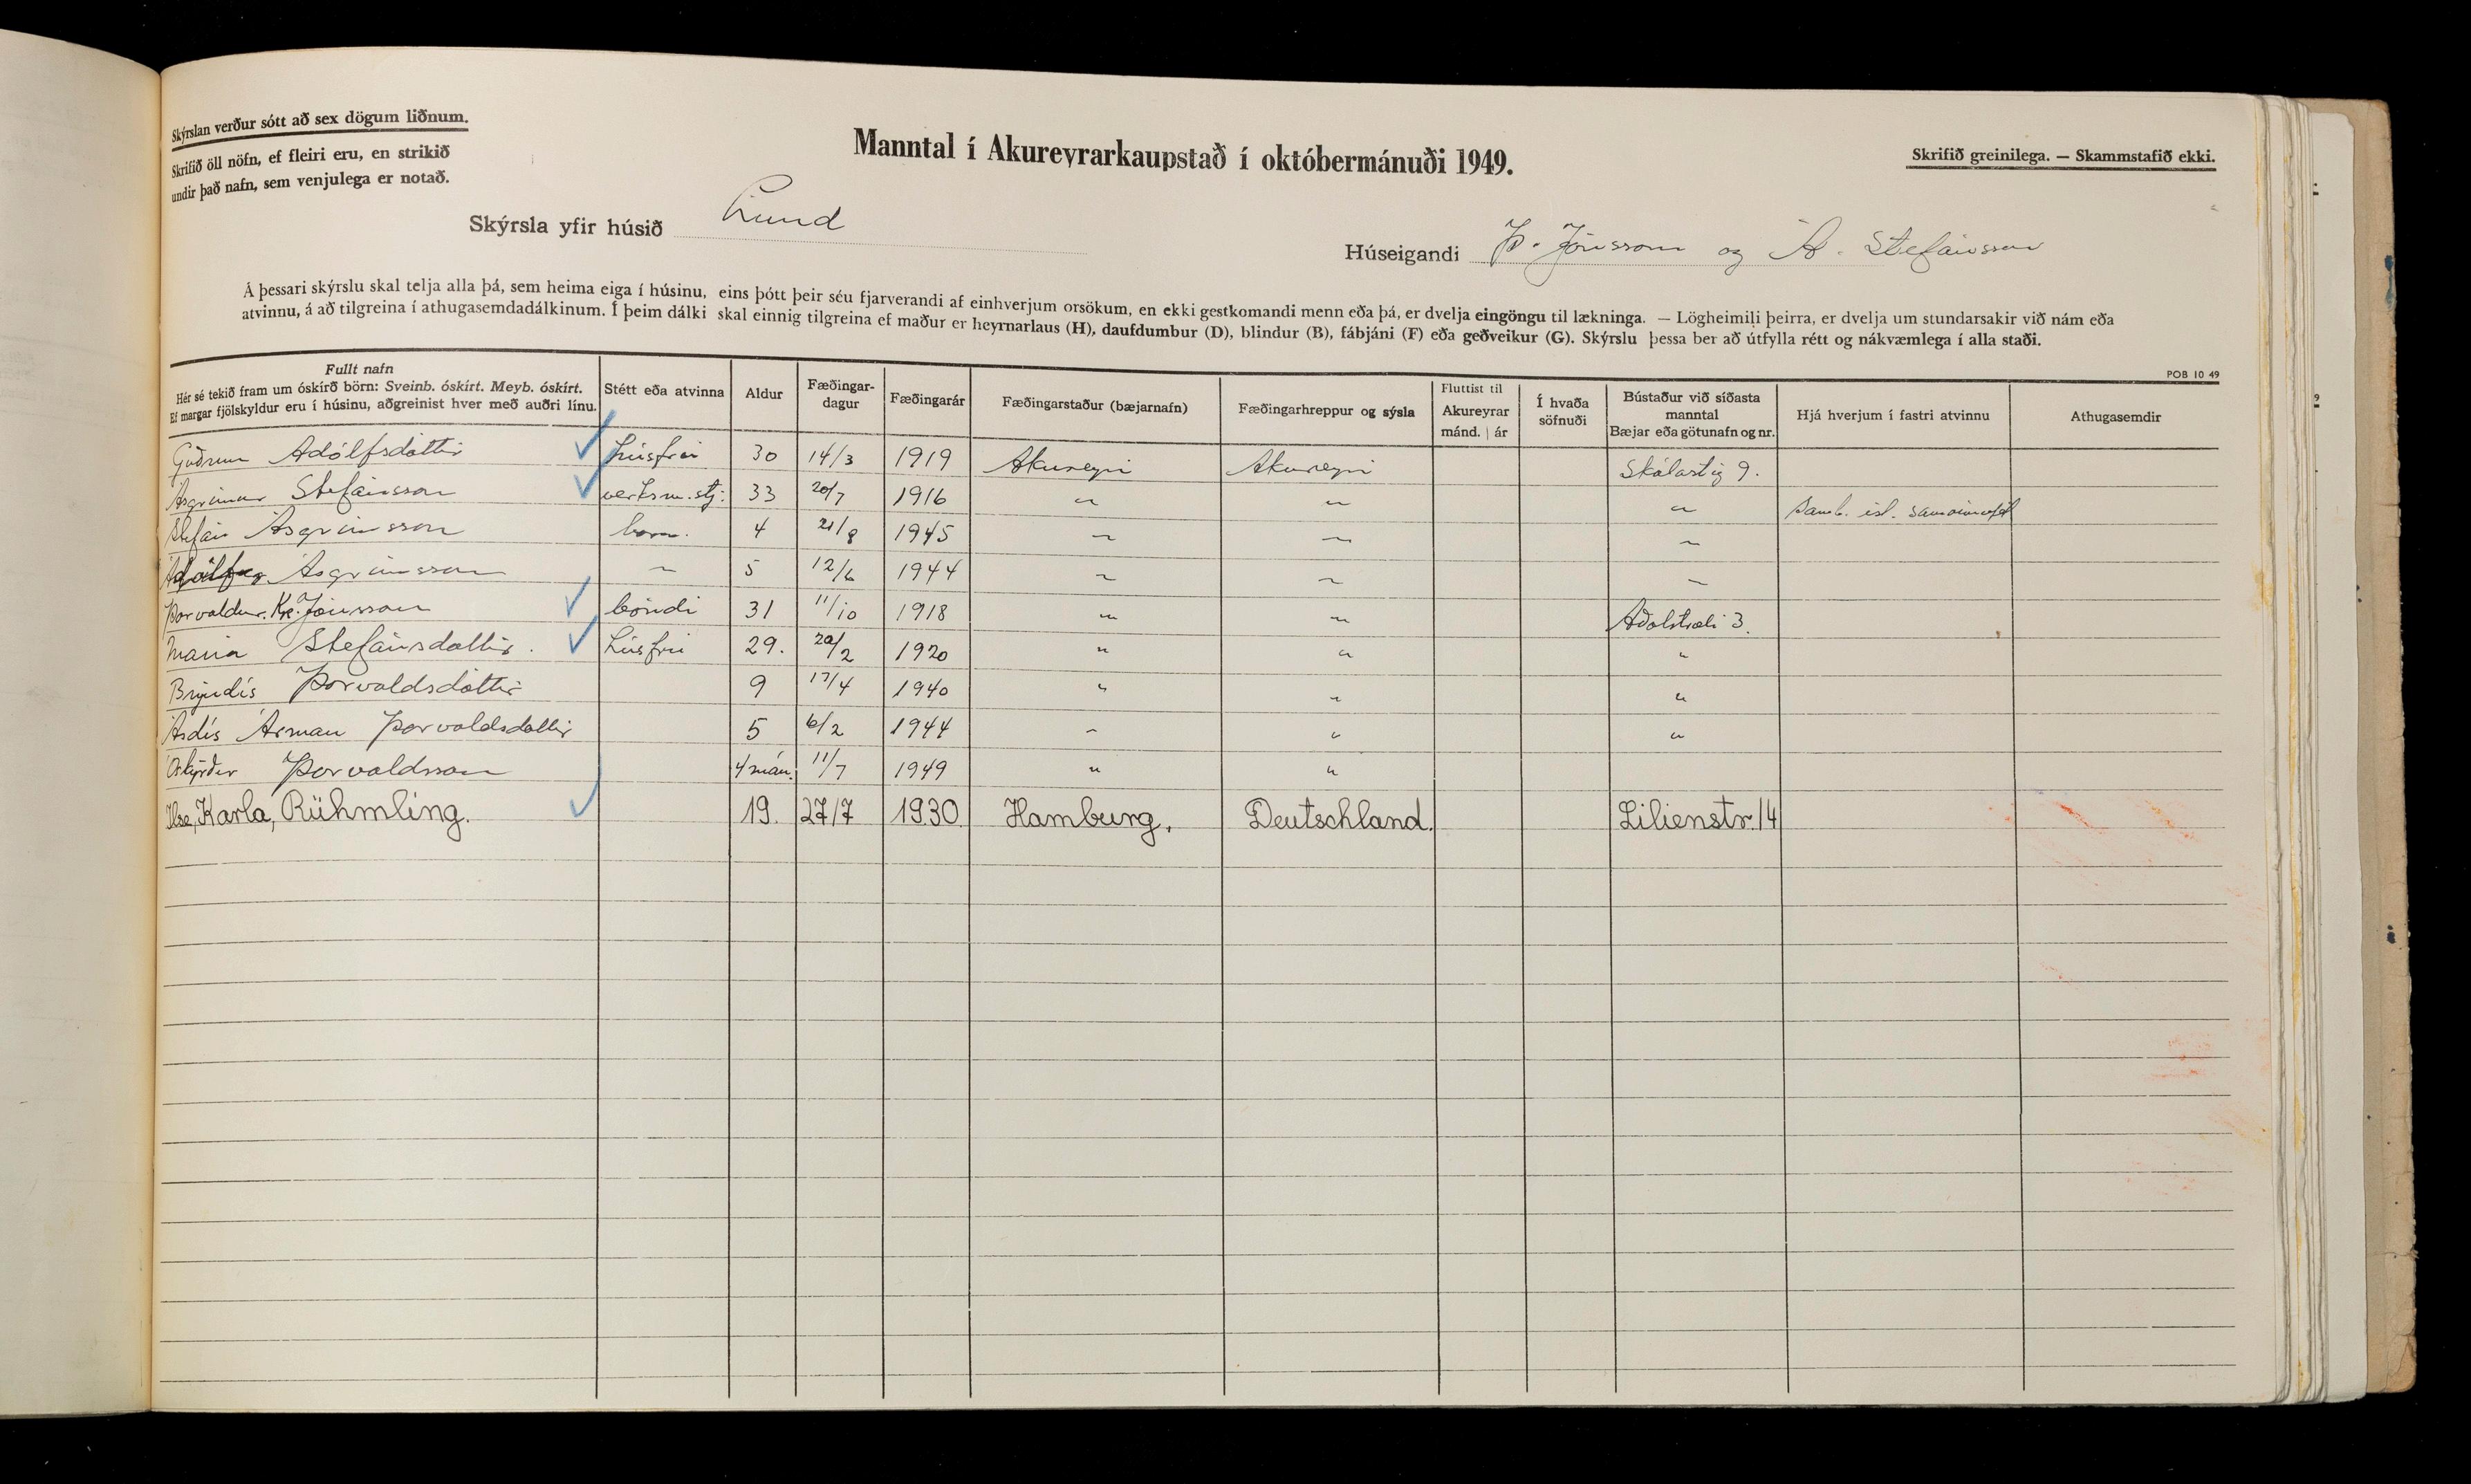 Skýrslan verður sótt að sex dögum liðnum.
Skrifið öll nöfn, ef fleiri eru, en strikið
undir það nafn, sem venjulega er notað.
Manntal í Akureyrarkaupstað í októbermánuði 1949.
Skrifið greinilega. — Skammstafið ekki.
Skýrsla yfir húsið Lund
Húseigandi Þ. Jónsson og Á. Stefánsson
Á þessari skýrslu skal telja alla þá, sem heima eiga í húsinu, eins þótt þeir séu fjarverandi af einhverjum orsökum, en ekki gestkomandi menn eða þá, er dvelja eingöngu til lækninga. — Lögheimili þeirra, er dvelja um stundarsakir við nám eða
atvinnu, á að tilgreina í athugasemdadálkinum. Í þeim dálki skal einnig tilgreina ef maður er heyrnarlaus (H), daufdumbur (D), blindur (B), fábjáni (F) eða geðveikur (G). Skýrslu þessa ber að útfylla rétt og nákvæmlega í alla staði.
POB 10 49
Fullt nafn
Hér sé tekið fram um óskírð börn: Sveinb. óskírt. Meyb. óskírt.
Ef margar fjölskyldur eru í húsinu, aðgreinist hver með auðri línu.
Stétt eða atvinna
Aldur
Fæðingar-
dagur
Fæðingarár
Fæðingarstaður (bæjarnafn)
Fæðingarhreppur og sýsla
Fluttist til
Akureyrar
mánd. | ár
Í hvaða
söfnuði
Bústaður við síðasta
manntal
Bæjar eða götunafn og nr.
Hjá hverjum í fastri atvinnu
Athugasemdir
Guðrun Adólfsdóttir ✓ húsfrú 30 14/3 1919 Akureyri Akureyri Skólastíg 9.
Ásgrímur Stefánsson ✓ verksm.stj. 33 20/7 1916 " " " Samb. ísl.
Stefán Ásgrímsson barn. 4 21/8 1945 " " "
Ásgrímsson " 5 12/6 1944 " " "
Þorvaldur. Kr. Jónsson ✓ bóndi 31 11/10 1918 " " Aðalstræti 3.
María Stefánsdóttir. ✓ húsfrú 29. 20/2 1920 " " "
Bryndís Þorvaldsdóttir 9 17/4 1940 " " "
Ásdís Árman Þorvaldsdóttir 5 6/2 1944 " " "
Óskýrður Þorvaldsson 4 mán. 11/7 1949 " "
Ilse, Karla, Rühmling. ✓ 19. 27/7 1930 Hamburg. Deutschland. Lilienstr. 14